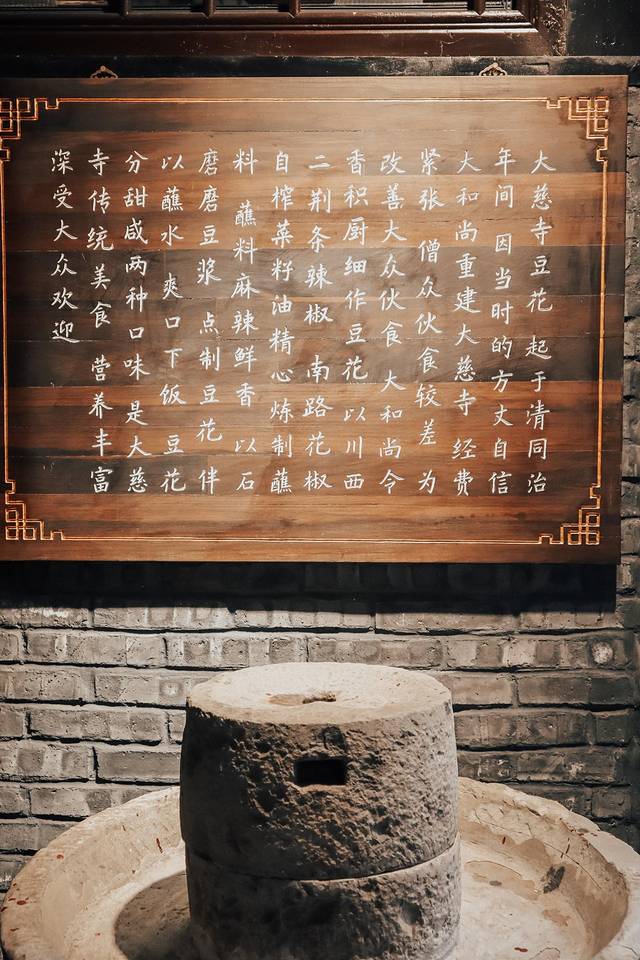 大慈寺豆花 起于清同治
年间 因当时的方丈自信
大和尚重建大慈寺 经费
紧张 僧众伙食较差 为
改善大众伙食 大和尚令
香积厨细作豆花 以川西
二荆条辣椒 南路花椒
自榨菜籽油精心炼制蘸
料 蘸料麻辣鲜香 以石
磨磨豆浆 点制豆花 伴
以蘸水 爽口下饭 豆花
分甜咸两种口味是大慈
寺传统美食 营养丰富
深受大众欢迎